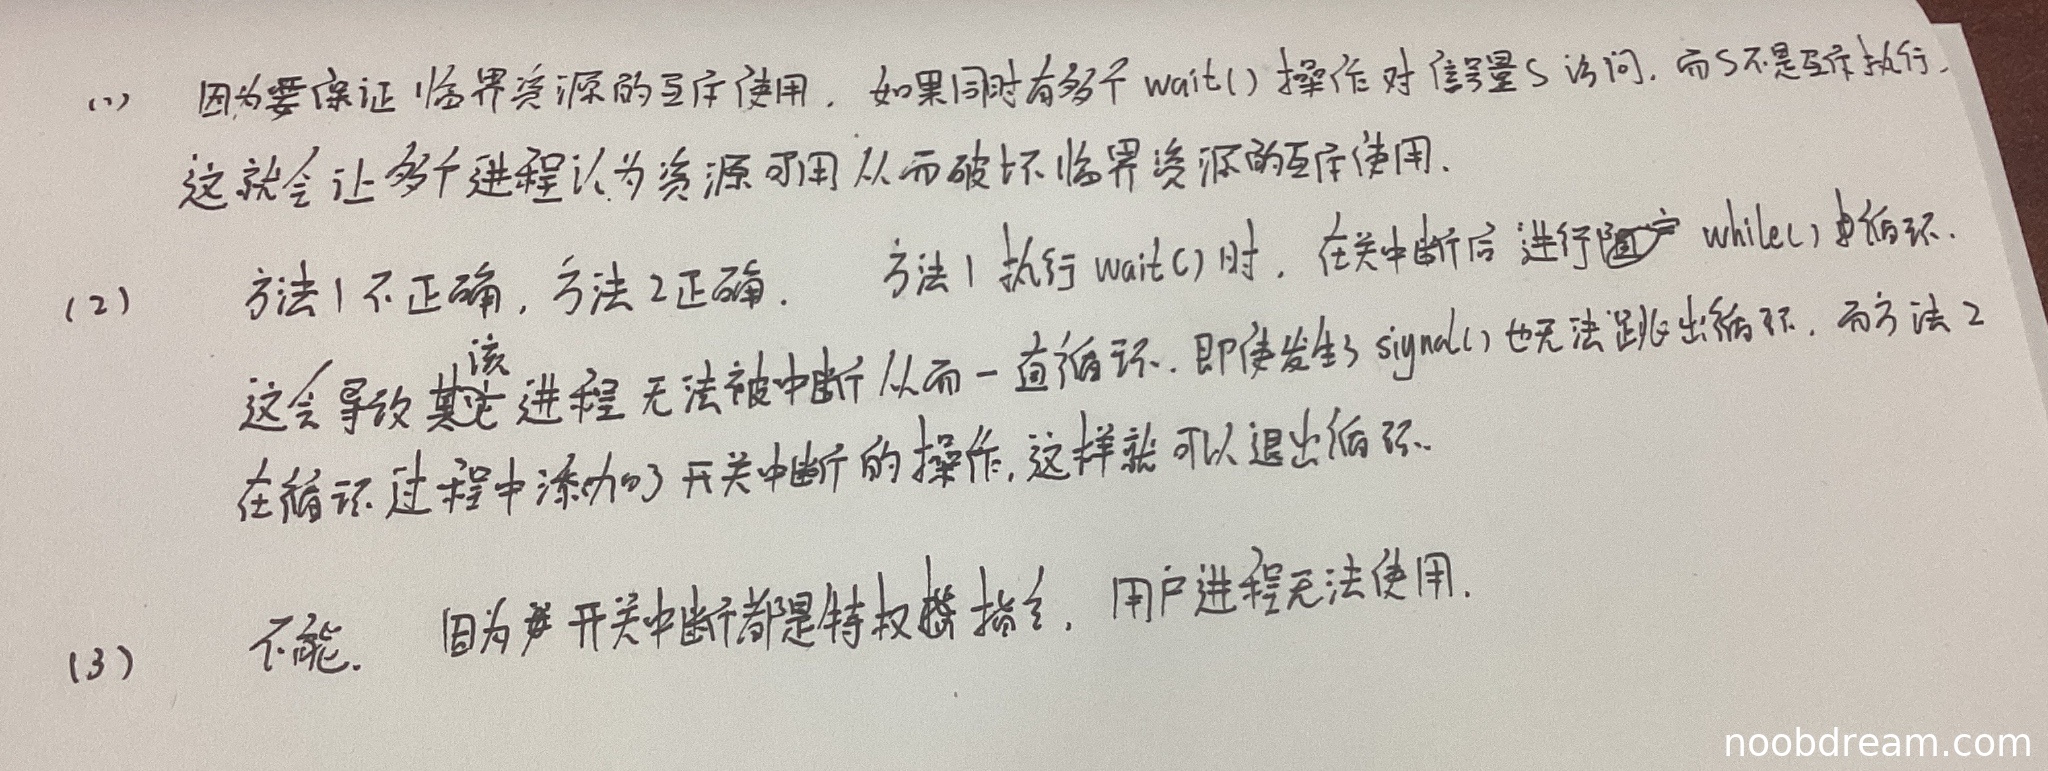 (1) 因为要保证临界资源的互斥使用. 如果同时有多个 wait() 操作对信号量S访问. 而S不是互斥执行,
这就会让多个进程认为资源可用从而破坏临界资源的互斥使用.
(2) 方法1不正确, 方法2正确. 方法1执行wait()时, 在关中断后进行 while() 循环.
这会导致该进程无法被中断从而一直循环. 即使发生了signal()也无法跳出循环. 而方法2
在循环过程中添加了开关中断的操作, 这样就可以退出循环.
(3) 不能. 因为开关中断都是特权指令, 用户进程无法使用.
noobdream.com